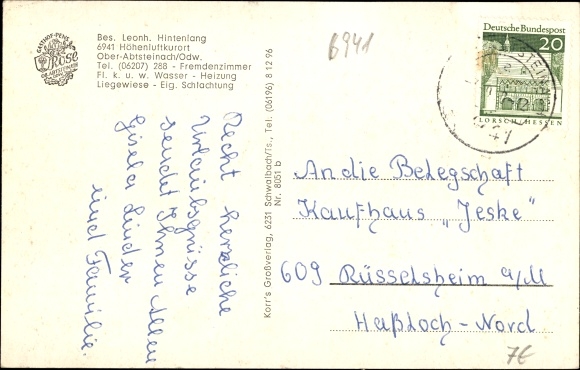 GASTHOF-PENS.
ROSE
OB.-ABTSTEINACH
Bes. Leonh. Hintenlang
6941 Höhenluftkurort
Ober-Abtsteinach/Odw.
Tel. (06207) 288 - Fremdenzimmer
Fl. k. u. w. Wasser - Heizung
Liegewiese - Eig. Schlachtung
6941
Deutsche Bundespost
20
LORSCH/HESSEN
Recht herzliche
Urlaubsgrüsse
sendet Ihnen Allen
Gisela Linder
und Familie.
Korr's Großverlag, 6231 Schwalbach/Ts., Tel. (06196) 8 12 96
Nr. 8051 b
An die Belegschaft
Kaufhaus „Jeske"
609 Rüsselsheim a/M
Haßloch-Nord
7€